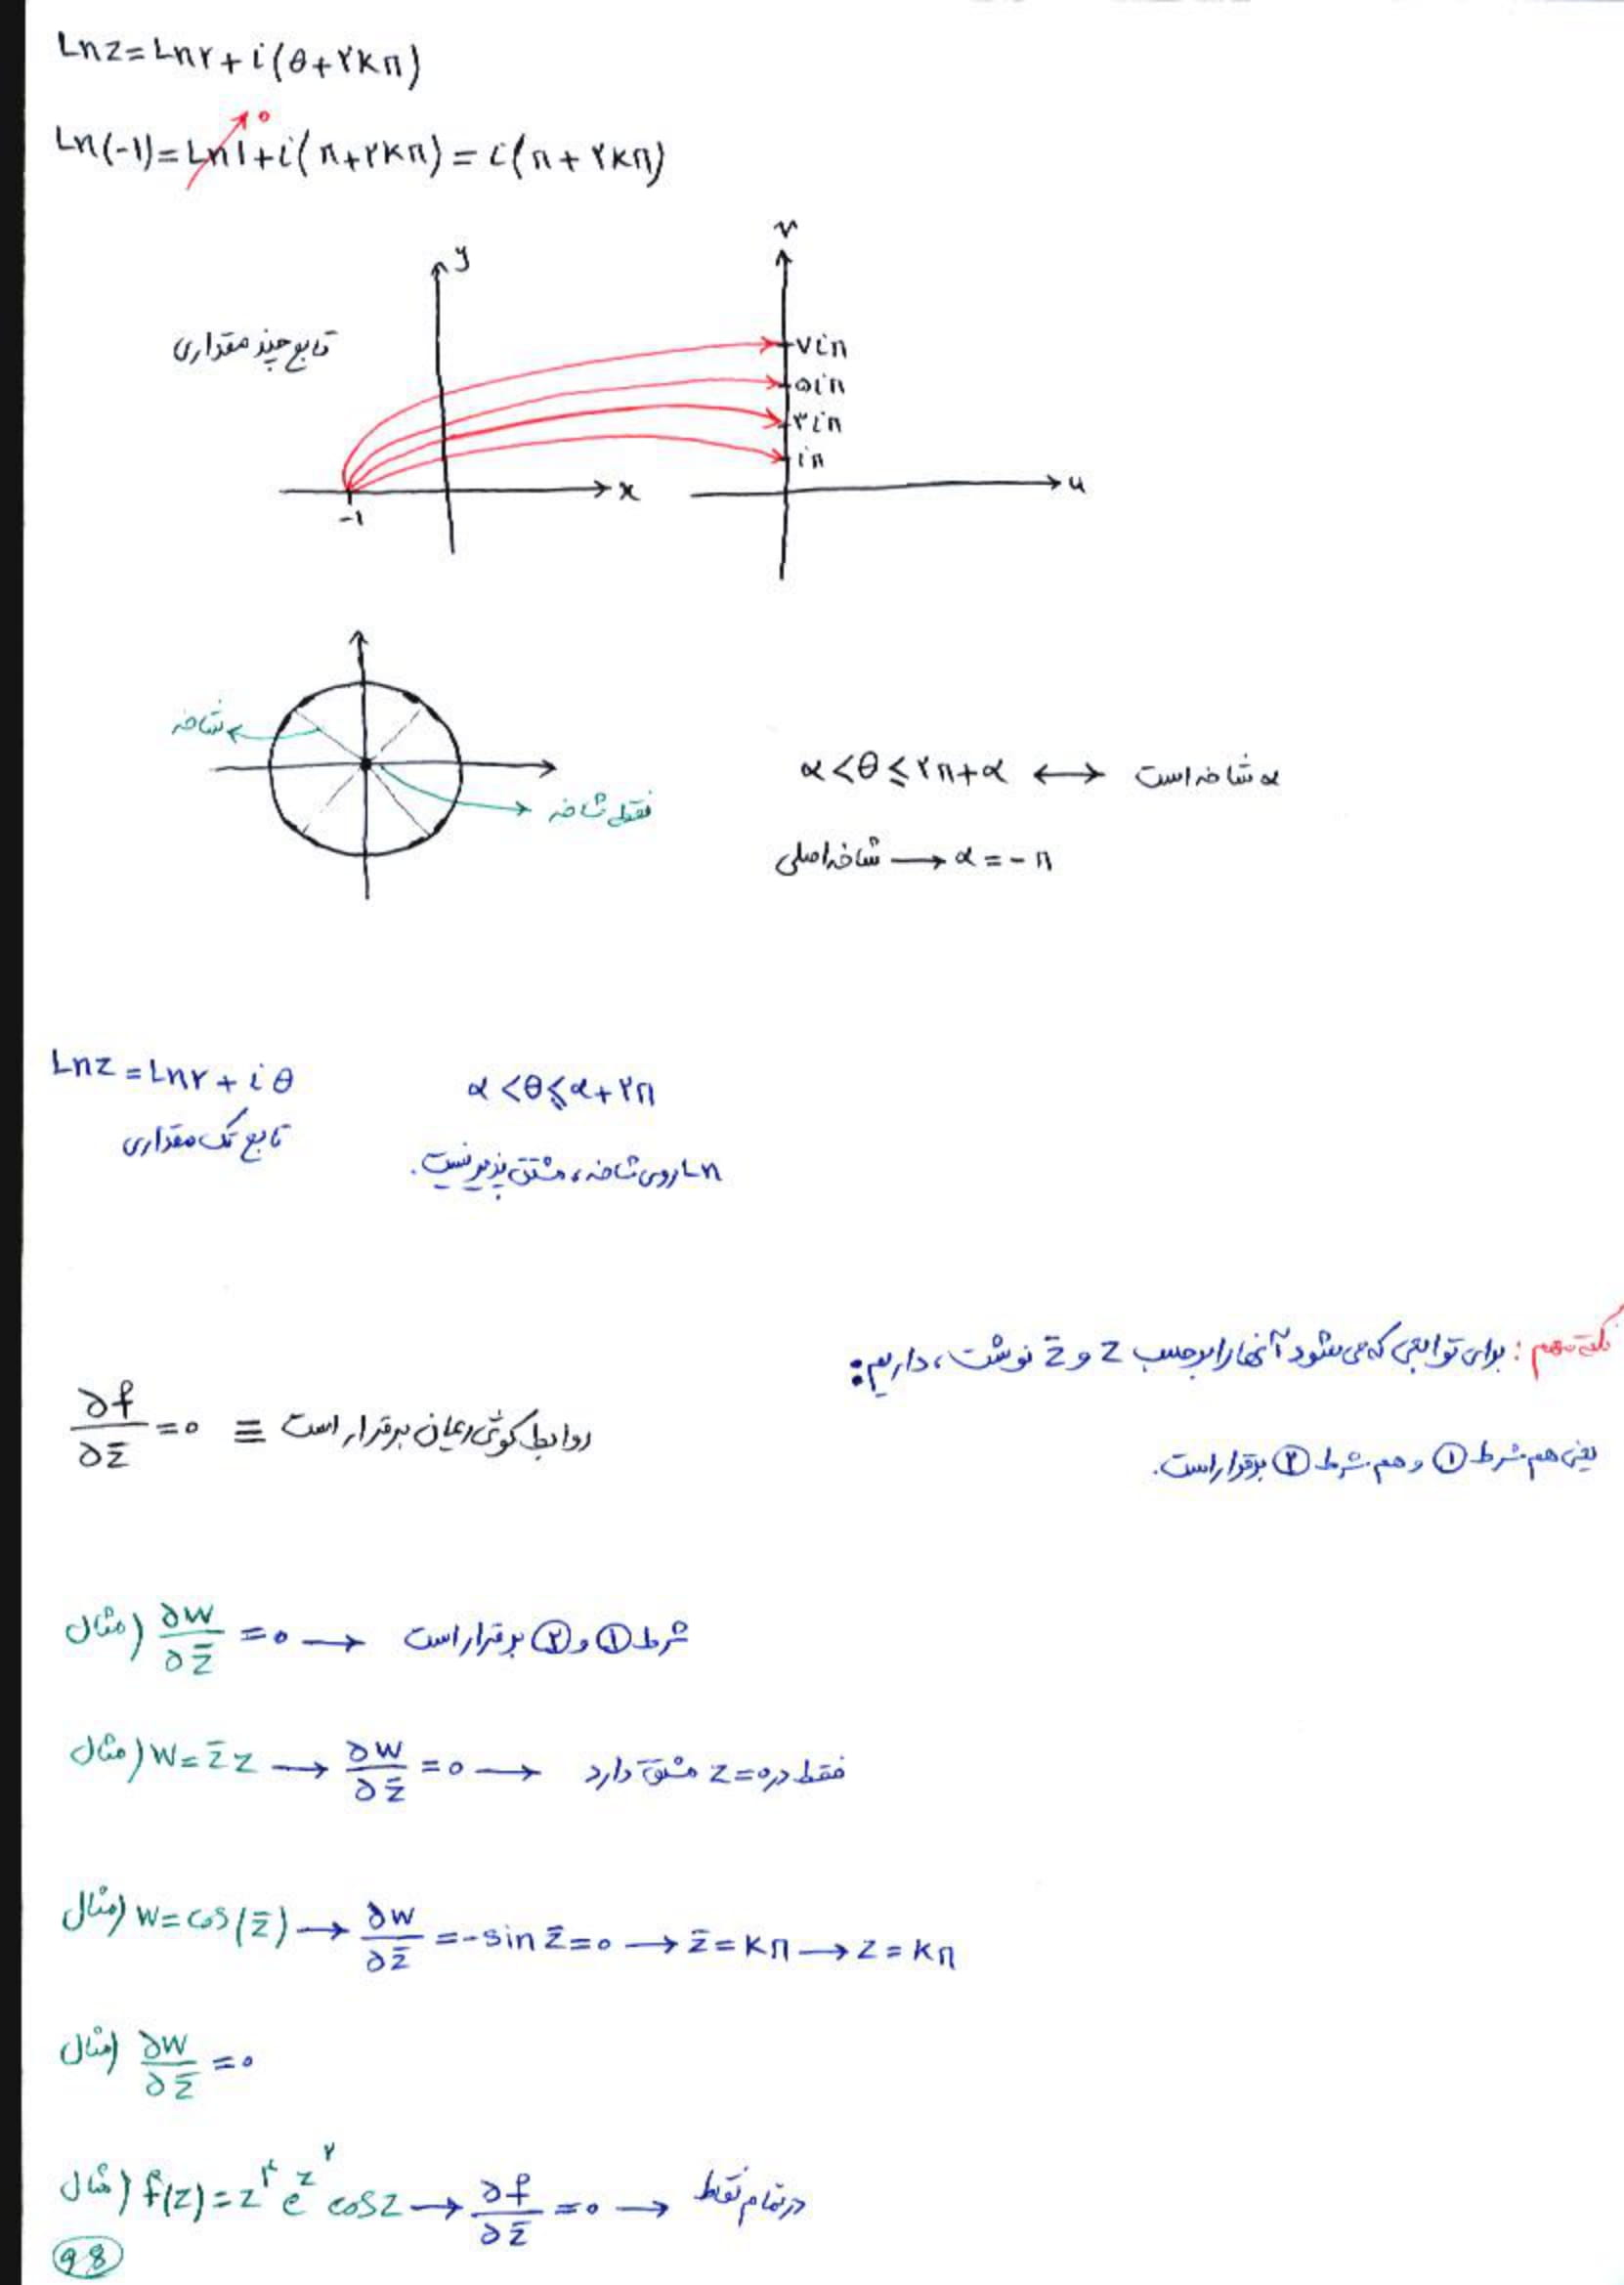 Lnz=Lnr+i(θ+۲kπ)
Ln(-1)=Ln1+i(π+۲kπ)=i(π+۲kπ)
0
y
v
تابع چند مقداری
۷iπ
۵iπ
۳iπ
iπ
x
u
-1
شاخه
نقطه شاخه
α<θ≤۲π+α ⟷ α شاخه است
شاخه اصلی ⟶ α=-π
Lnz=Lnr+iθ α<θ≤α+۲π
تابع تک مقداری
Ln روی شاخه، مشتق پذیر نیست.
نکته مهم: برای توابعی که می شود آنها را برحسب z و z̄ نوشت، داریم:
∂f/∂z̄=0 ≡ روابط کوشی ریمان برقرار است
یعنی هم شرط ① و هم شرط ② برقرار است.
مثال) ∂w/∂z̄=0 ⟶ شرط ① و ② برقرار است
مثال) w=z̄z ⟶ ∂w/∂z̄=0 ⟶ فقط در z=0 مشتق دارد
مثال) w=cos(z̄) ⟶ ∂w/∂z̄=-sin z̄=0 ⟶ z̄=kπ ⟶ z=kπ
مثال) ∂w/∂z̄=0
مثال) f(z)=z^۴ e^z^۲ cosz ⟶ ∂f/∂z̄=0 ⟶ در تمام نقاط
98